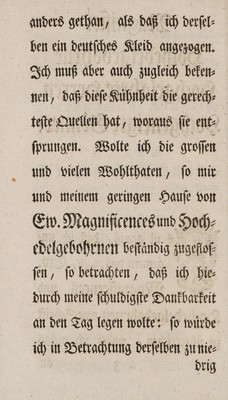 anders gethan, als daß ich dersel-
ben ein deutsches Kleid angezogen.
Ich muß aber auch zugleich beken-
nen, daß diese Kühnheit die gerech-
teste Quellen hat, woraus sie ent-
sprungen. Wolte ich die grossen
und vielen Wohlthaten, so mir
und meinem geringen Hause von
Ew. Magnificences und Hoch-
edelgebohrnen beständig zugeflos-
sen, so betrachten, daß ich hie-
durch meine schuldigste Dankbarkeit
an den Tag legen wolte: so würde
ich in Betrachtung derselben zu nie-
drig